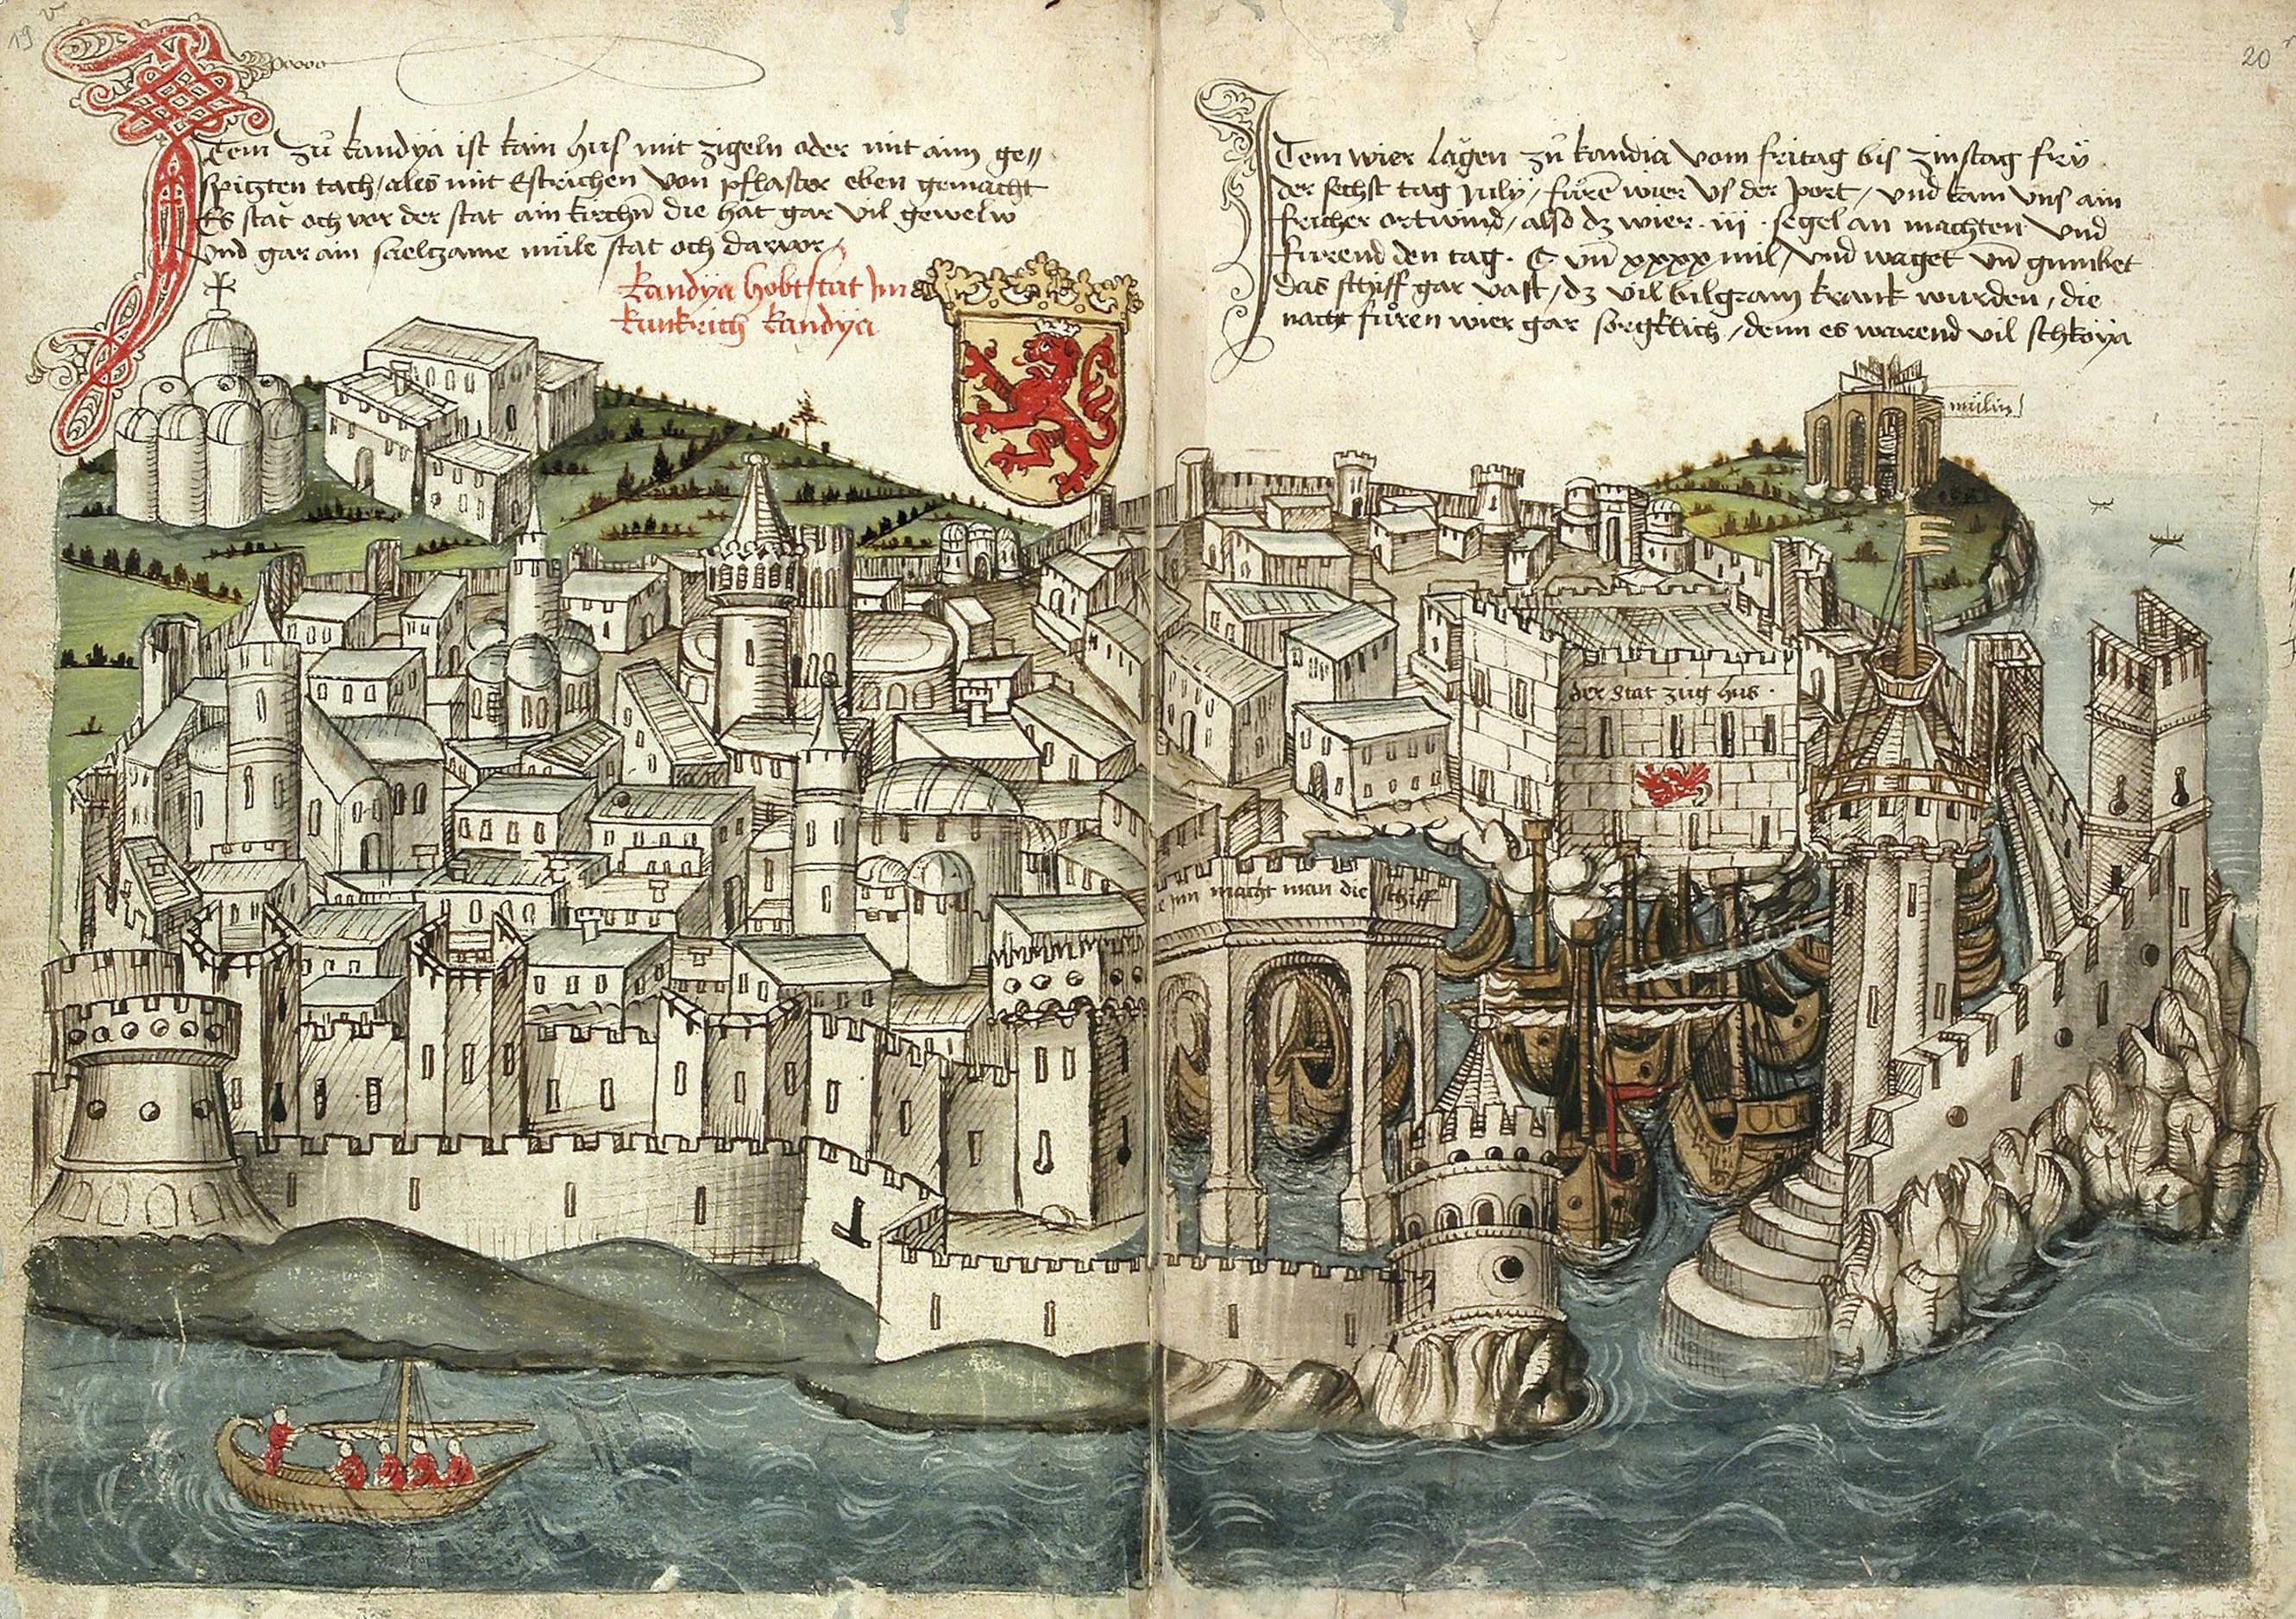 19 v
Item zů kandÿa ist kain hus mit zigeln oder mit aim ge//
spitzten tach / ales mit Estrichen von pflaster eben gemacht
Es stat och vor der stat ain kirchñ die hat gar vil gewelw
und gar ain saeltzame mùle stat och darvor /
kandÿa hobtstat Im
kunkrich kandÿa
20 r
Item wier lagen zů kandia vom fritag bis zinstag frů
der sechst tag Julÿ / fůrẽ wier us der port / und kam uns ain
fricher ortwind / also dz wier . iij . segel an machten und
furend den tag . C uñ xxxx mil / und waget uñ gumbet
das schiff gar vast / dz vil bilgram krank wurden / die
nacht fůren wier gar sorgklich / denn es warend vil schkoÿa
mùlin
der stat zùg hus .
Inn macht man die schiff